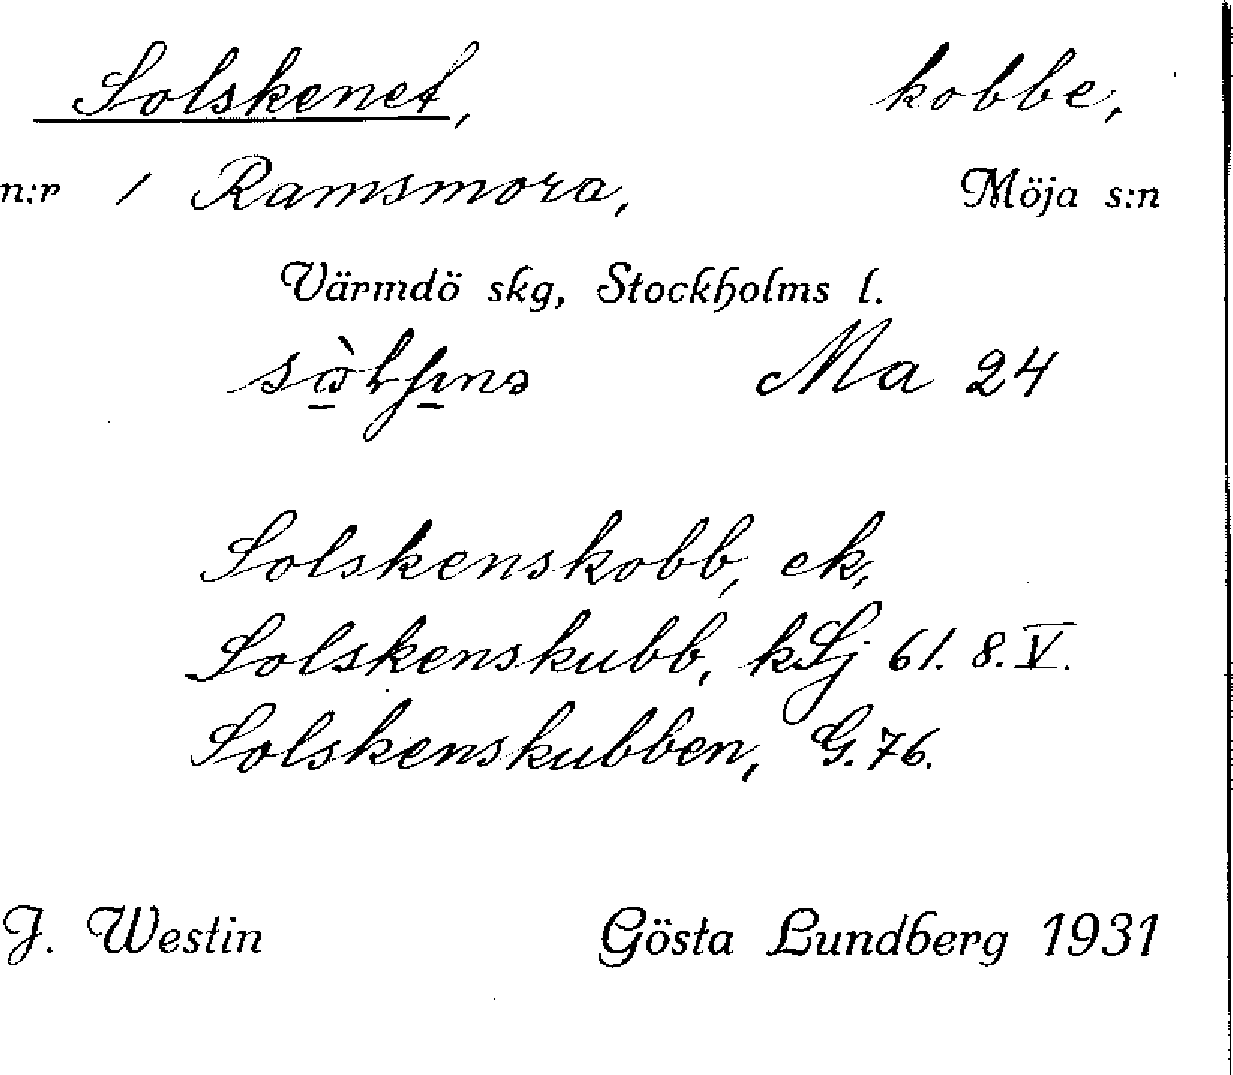 Solskenet, kobbe,
n:r 1 Ramsmora, Möja s:n
Värmdö skg, Stockholms l.
Ma 24
Solskenskobb, ek,
Solskenskubb, kSj 61. 8. V.
Solskenskubben, G. 76.
J. Westin Gösta Lundberg 1931